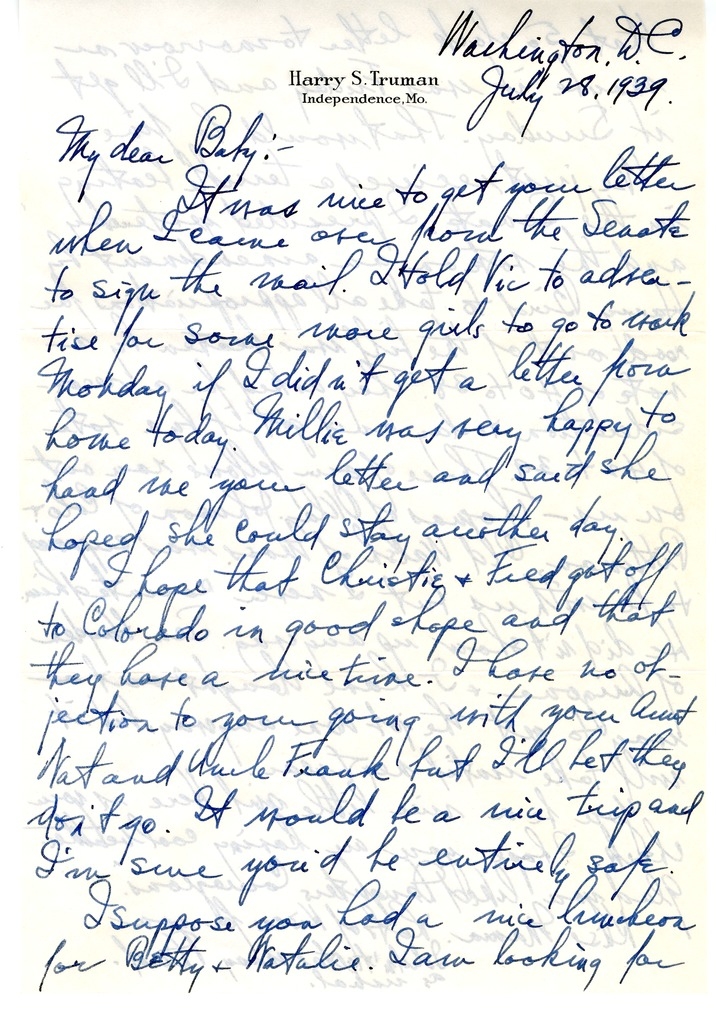 Washington, D.C.
Harry S. Truman
Independence, Mo.
July 28, 1939.
My dear Baby:-
It was nice to get your letter
when I came over from the Senate
to sign the mail. I told Vic to adver-
tise for some more girls to go to work
Monday if I didn't get a letter from
home today. Millie was very happy to
hand me your letter and said she
hoped she could stay another day.
I hope that Christie & Fred got off
to Colorado in good shape and that
they have a nice time. I have no ob-
jection to your going with your Aunt
Nat and Uncle Frank but I'll bet they
don't go. It would be a nice trip and
I'm sure you'd be entirely safe.
I suppose you had a nice luncheon
for Betty & Natalie. I am looking for